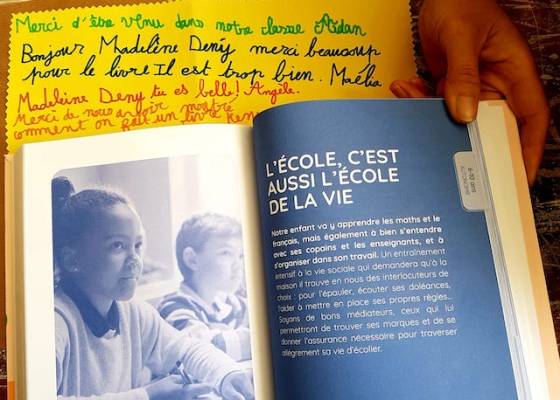 Merci d'être venu dans notre classe Aidan
Bonjour Madeline Deny merci beaucoup
pour le livre Il est trop bien. Maélia
Madeleine Deny tu es belle! Angèle.
Merci de nous avoir montré
comment on fait un livre
L'ÉCOLE, C'EST
AUSSI L'ÉCOLE
DE LA VIE
6-10 ans
Notre enfant va y apprendre les maths et le
français, mais également à bien s'entendre
avec ses copains et les enseignants, et à
s'organiser dans son travail. Un entraînement
intensif à la vie sociale qui demandera qu'à la
maison il trouve en nous des interlocuteurs de
choix : pour l'épauler, écouter ses doléances,
l'aider à mettre en place ses propres règles...
Soyons de bons médiateurs, ceux qui lui
permettront de trouver ses marques et de se
donner l'assurance nécessaire pour traverser
allègrement sa vie d'écolier.